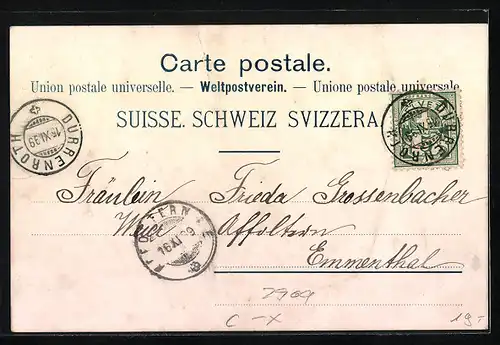 Carte postale.
Union postale universelle. — Weltpostverein. — Unione postale universale.
SUISSE. SCHWEIZ SVIZZERA.
DÜRRENROTH
16.XI.99
DÜRRENROTH
Fräulein Frieda Grossenbacher
Weier Affoltern
Emmenthal
AFFOLTERN
16.XI.99
C-X
19.-